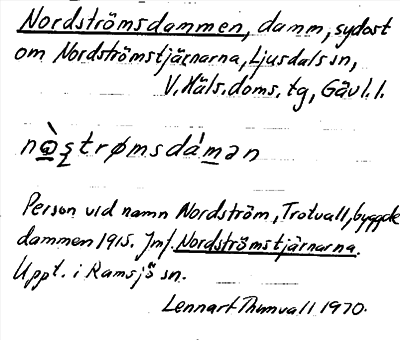 Nordströmsdammen, damm, sydost
om Nordströmstjärnarna, Ljusdals sn,
V. Häls. doms. tg, Gävl. l.
nò̱ʂtrømsdám̱ən
Person vid namn Nordström, Trotvall, byggde
dammen 1915. Jmf. Nordströmstjärnarna.
Uppt. i Ramsjö sn.
Lennart Thunvall 1970.